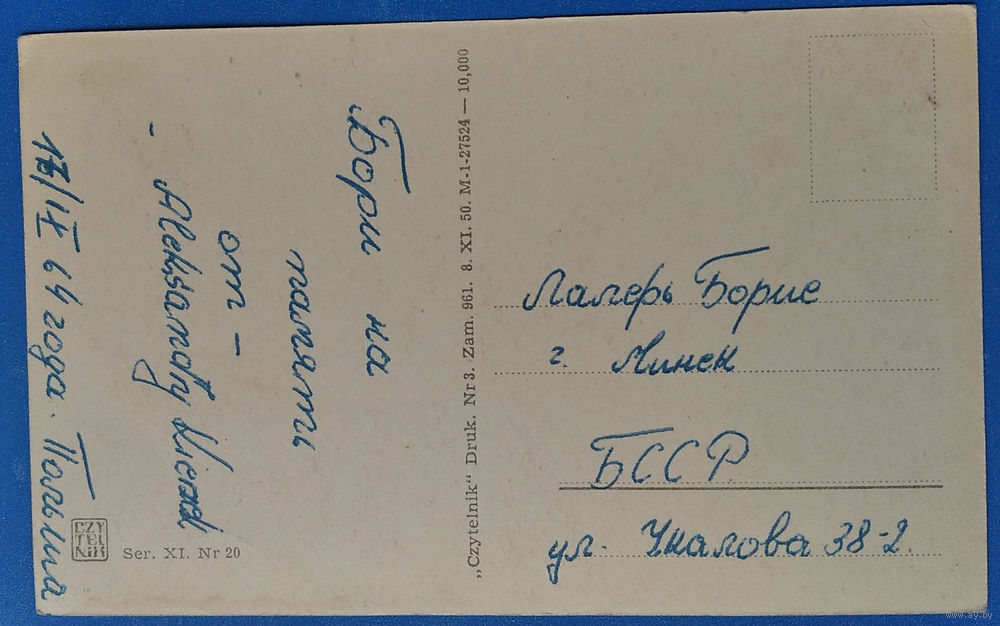 Бори на
память
от -
- Aleksandry
17/IX 64 года. Польша
CZY
TEL
NIK
Ser. XI. Nr 20
„Czytelnik“ Druk. Nr 3. Zam. 961. 8. XI. 50. M-1-27524 — 10,000
Ламерь Борис
г. Минск
БССР
ул. Чкалова 38-2.
www.ay.by